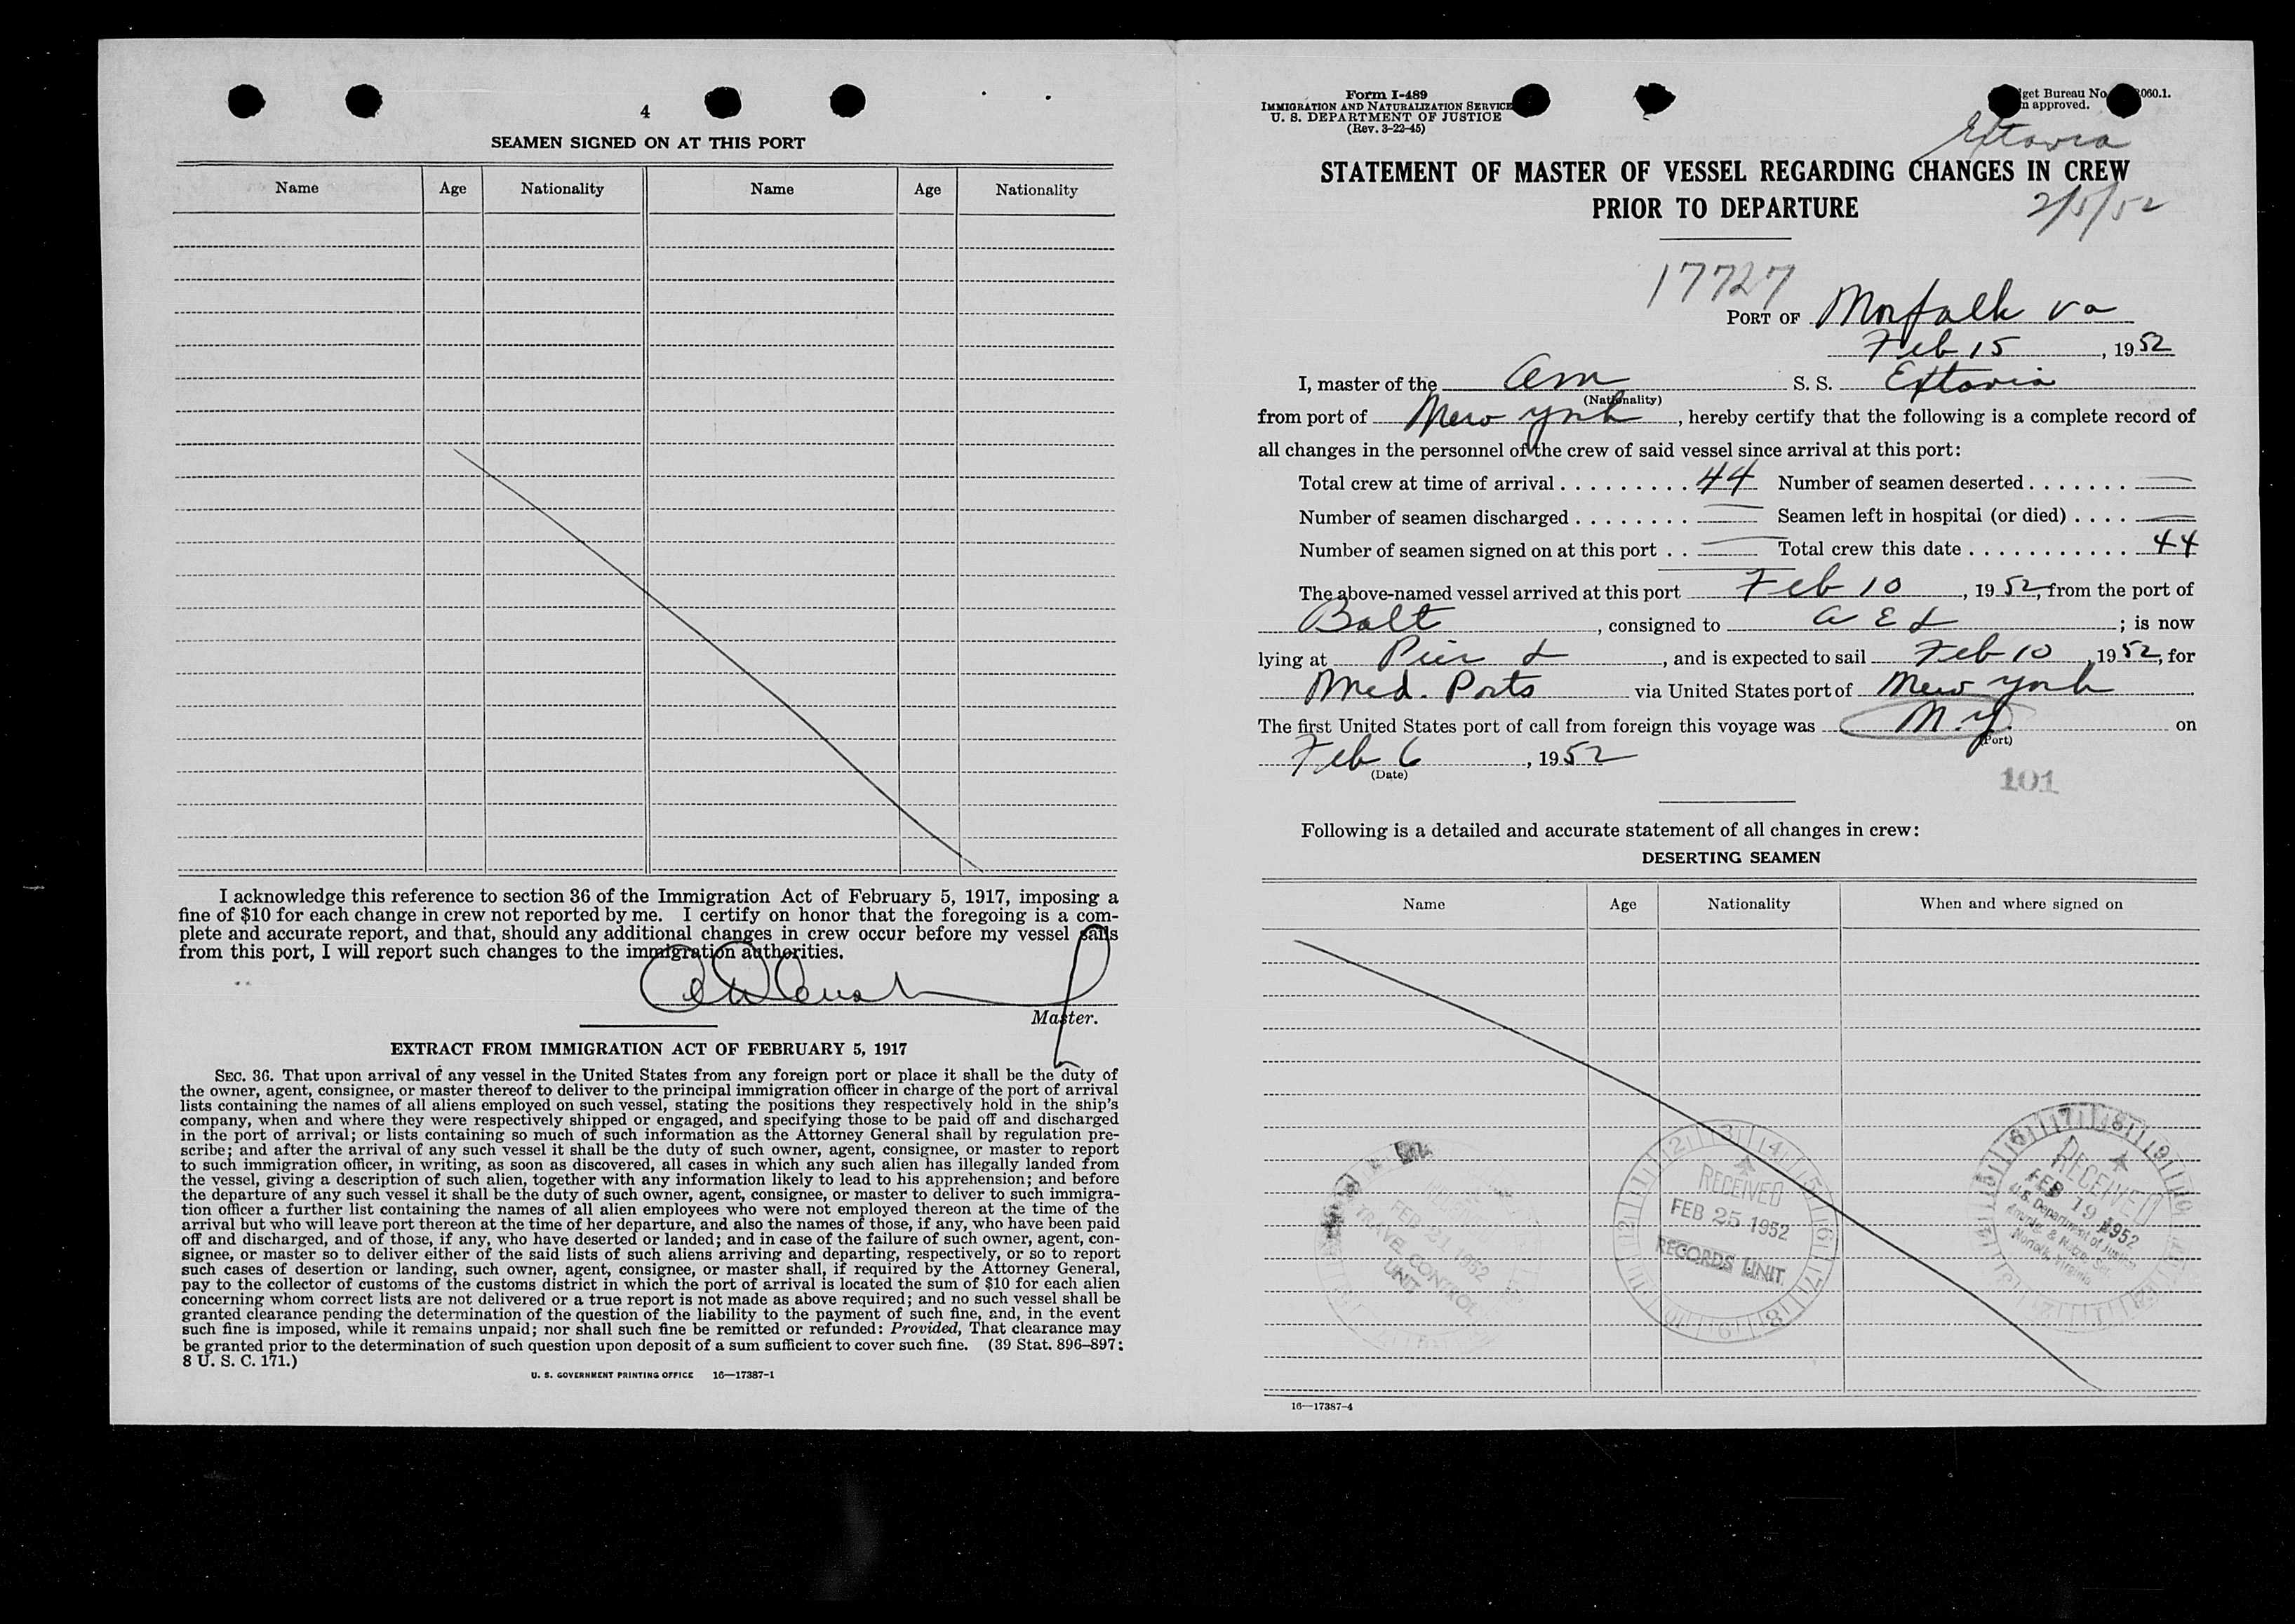 4
SEAMEN SIGNED ON AT THIS PORT
Name Age Nationality Name Age Nationality
I acknowledge this reference to section 36 of the Immigration Act of February 5, 1917, imposing a
fine of $10 for each change in crew not reported by me. I certify on honor that the foregoing is a com-
plete and accurate report, and that, should any additional changes in crew occur before my vessel sails
from this port, I will report such changes to the immigration authorities.
Master.
EXTRACT FROM IMMIGRATION ACT OF FEBRUARY 5, 1917
SEC. 36. That upon arrival of any vessel in the United States from any foreign port or place it shall be the duty of
the owner, agent, consignee, or master thereof to deliver to the principal immigration officer in charge of the port of arrival
lists containing the names of all aliens employed on such vessel, stating the positions they respectively hold in the ship's
company, when and where they were respectively shipped or engaged, and specifying those to be paid off and discharged
in the port of arrival; or lists containing so much of such information as the Attorney General shall by regulation pre-
scribe; and after the arrival of any such vessel it shall be the duty of such owner, agent, consignee, or master to report
to such immigration officer, in writing, as soon as discovered, all cases in which any such alien has illegally landed from
the vessel, giving a description of such alien, together with any information likely to lead to his apprehension; and before
the departure of any such vessel it shall be the duty of such owner, agent, consignee, or master to deliver to such immigra-
tion officer a further list containing the names of all alien employees who were not employed thereon at the time of the
arrival but who will leave port thereon at the time of her departure, and also the names of those, if any, who have been paid
off and discharged, and of those, if any, who have deserted or landed; and in case of the failure of such owner, agent, con-
signee, or master so to deliver either of the said lists of such aliens arriving and departing, respectively, or so to report
such cases of desertion or landing, such owner, agent, consignee, or master shall, if required by the Attorney General,
pay to the collector of customs of the customs district in which the port of arrival is located the sum of $10 for each alien
concerning whom correct lists are not delivered or a true report is not made as above required; and no such vessel shall be
granted clearance pending the determination of the question of the liability to the payment of such fine, and, in the event
such fine is imposed, while it remains unpaid; nor shall such fine be remitted or refunded: Provided, That clearance may
be granted prior to the determination of such question upon deposit of a sum sufficient to cover such fine. (39 Stat. 896–897;
8 U. S. C. 171.)
U. S. GOVERNMENT PRINTING OFFICE 16—17387-1
Form I-489
IMMIGRATION AND NATURALIZATION SERVICE
U. S. DEPARTMENT OF JUSTICE
(Rev. 3-22-45)
get Bureau No. 060.1.
approved.
Extavia
STATEMENT OF MASTER OF VESSEL REGARDING CHANGES IN CREW
PRIOR TO DEPARTURE
2/5/52
17727
PORT OF Norfolk Va
Feb 15, 1952
I, master of the Am S. S. Extavia
(Nationality)
from port of New York, hereby certify that the following is a complete record of
all changes in the personnel of the crew of said vessel since arrival at this port:
Total crew at time of arrival . . . . . . . . . 44 Number of seamen deserted . . . . . . . —
Number of seamen discharged . . . . . . . . — Seamen left in hospital (or died) . . . . —
Number of seamen signed on at this port . . — Total crew this date . . . . . . . . . . . 44
The above-named vessel arrived at this port Feb 10, 1952, from the port of
Balt, consigned to A E L; is now
lying at Pier L, and is expected to sail Feb 10, 1952, for
Med. Ports via United States port of New York
The first United States port of call from foreign this voyage was N.Y. on
(Port)
Feb 6, 1952
(Date)
101
Following is a detailed and accurate statement of all changes in crew:
DESERTING SEAMEN
Name Age Nationality When and where signed on
FEB 21 1952
TRAVEL CONTROL
UNIT
RECEIVED
FEB 25 1952
RECORDS UNIT
RECEIVED
FEB 19 1952
U.S. Department of Justice
Norfolk, Virginia
16—17387-4